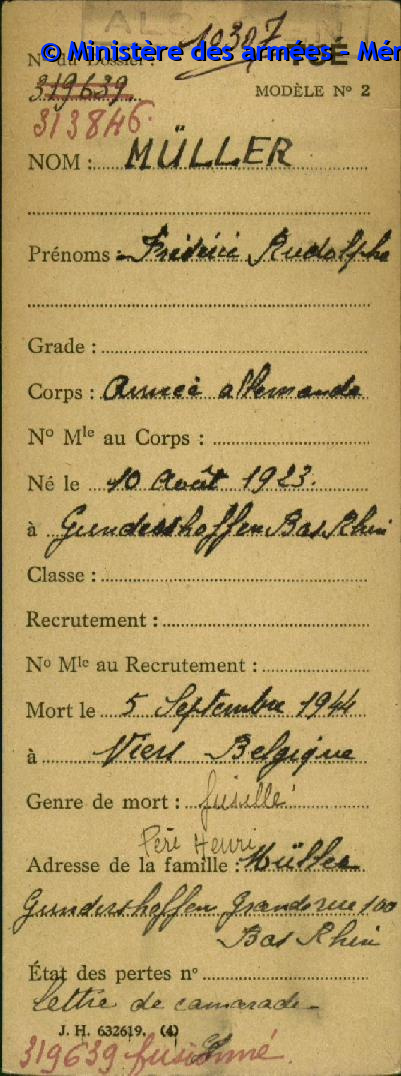 ALSACIEN
10307
© Ministère des armées - Mém
N° du Dossier :
TUÉ
319639
MODÈLE N° 2
313846.
NOM : MÜLLER
Prénoms : Frédéric Rudolphe
Grade :
Corps : Armée allemande
N° Mle au Corps :
Né le 10 Août 1923.
à Gundershoffen Bas Rhin
Classe :
Recrutement :
N° Mle au Recrutement :
Mort le 5 Septembre 1944
à Viers Belgique
Genre de mort : fusillé
Père Henri
Adresse de la famille : Müller
Gundershoffen Grande rue 100
Bas Rhin
État des pertes n°
lettre de camarade
J. H. 632619. (4)
319639 fusionné.